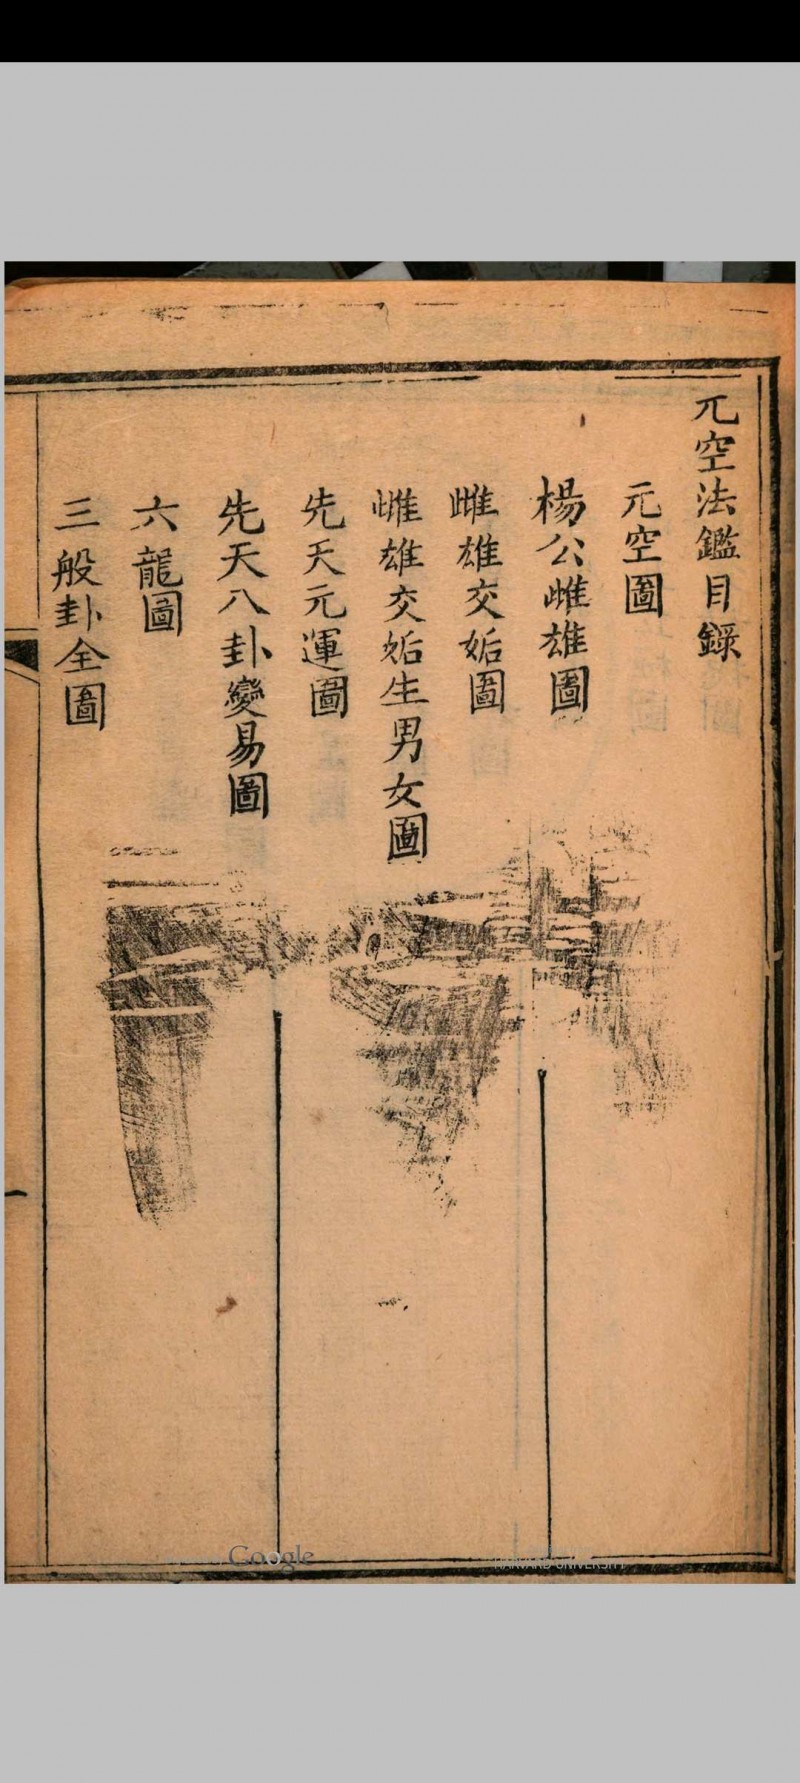 元空法鑑目錄
元空圖
楊公雌雄圖
雌雄交姤圖
雌雄交姤生男女圖
先天元運圖
先天八卦變易圖
六龍圖
三般卦全圖
Google
HARVARD UNIVERSITY